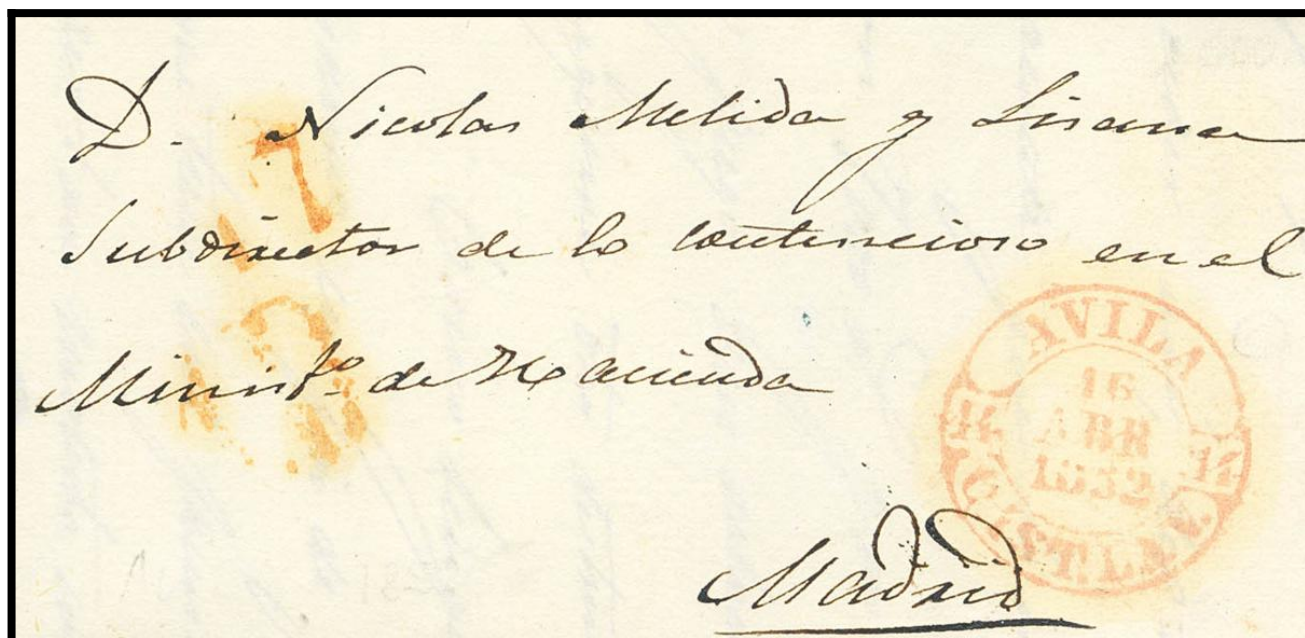 D. Nicolas Melida y Lisana
Subdirector de lo contencioso en el
Minist.º de Hacienda
Madrid
AVILA
16
ABR
1852
14 14
CAST.LA V.